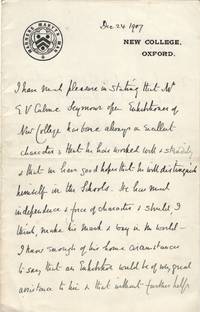 MANNERS MAKYTH MAN
Dec 24 1907
NEW COLLEGE,
OXFORD.
I have much pleasure in stating that Mr
E V Culme Seymour open Exhibitioner of
New College has borne always an excellent
character & that he has worked well & steadily
& that we have good hopes that he will distinguish
himself in the Schools. He has much
independence & force of character & should, I
think, make his mark & way in the world —
I know enough of his home circumstances
to say that an Exhibition would be of very great
assistance to him & that without further help